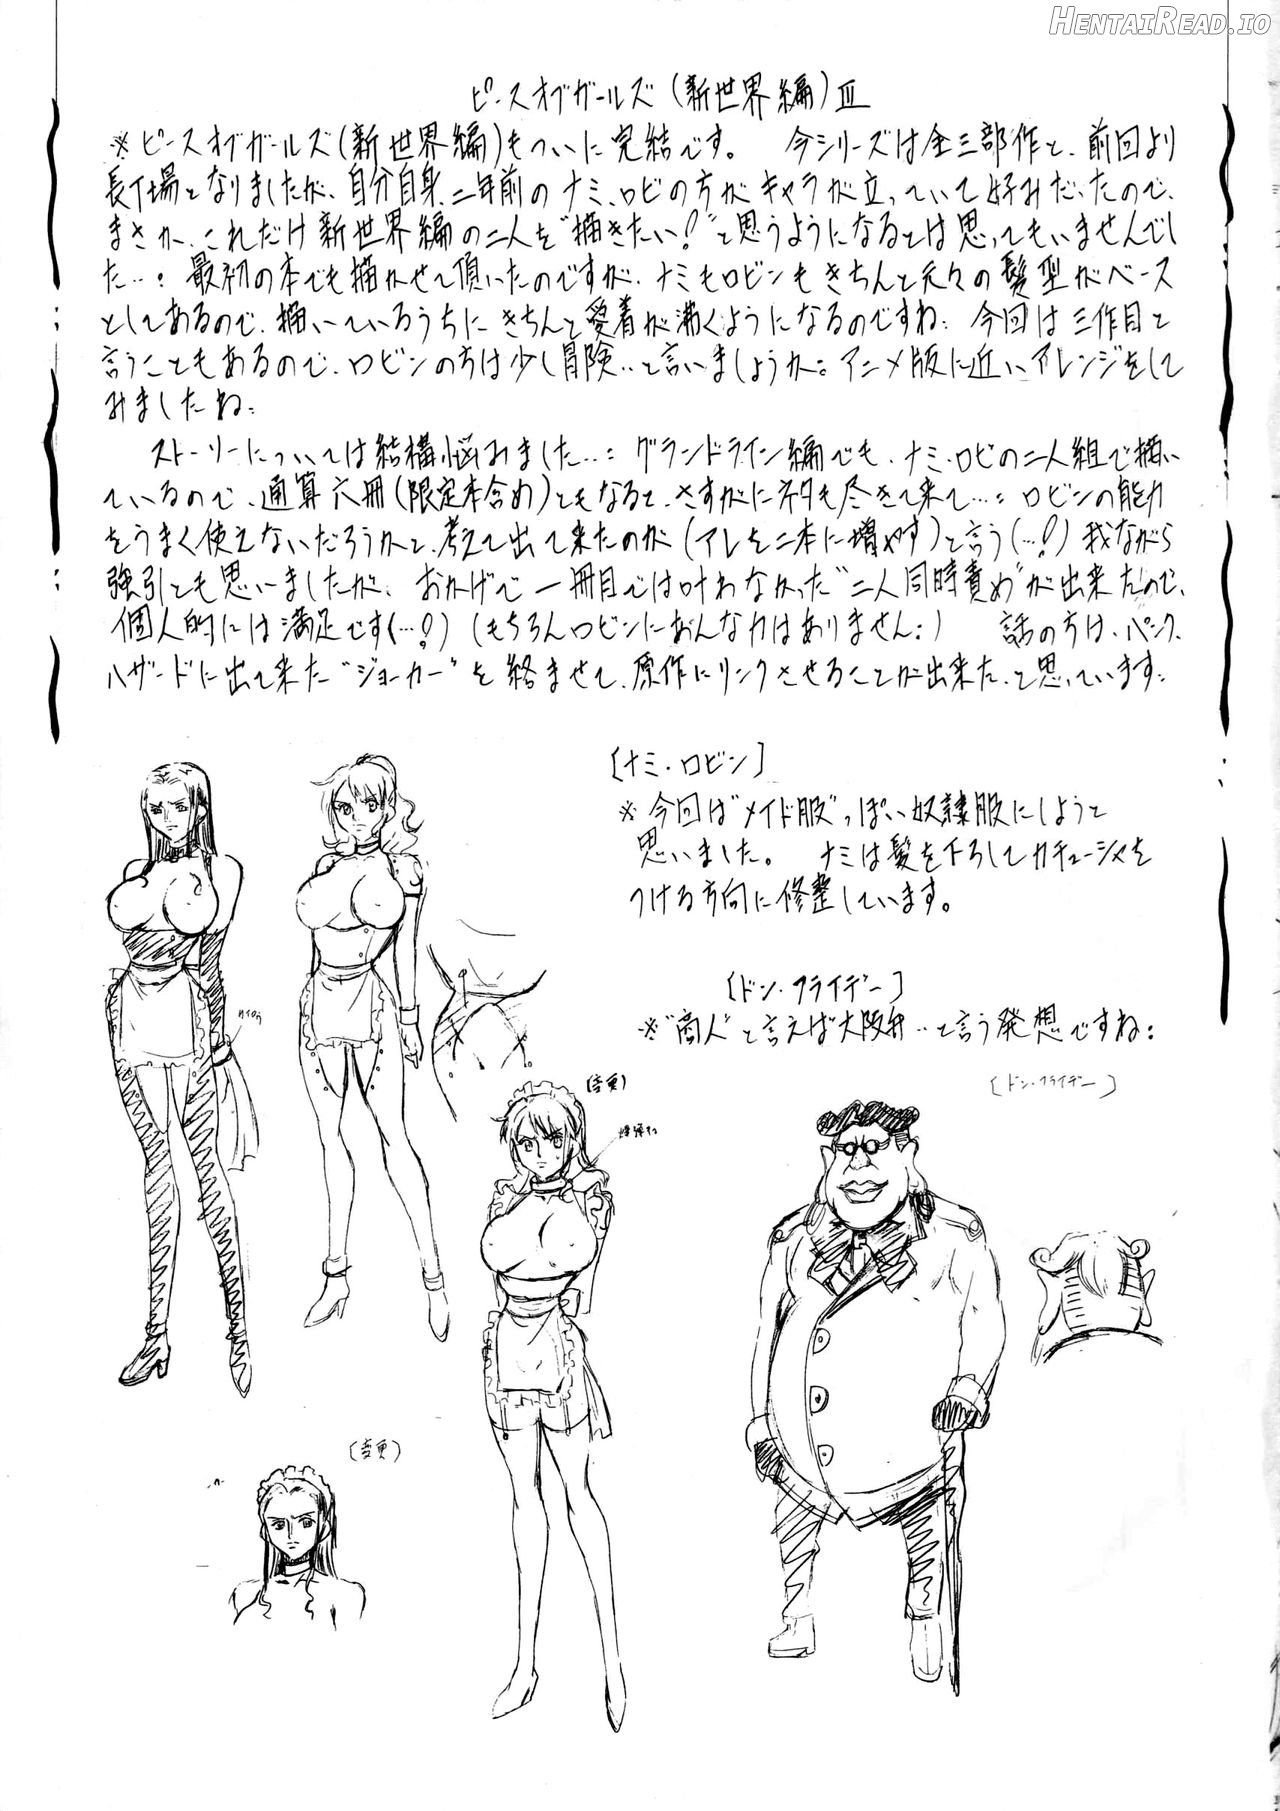 HENTAIREAD.IO
ピースオブガールズ(新世界編)Ⅲ
※ピースオブガールズ(新世界編)もついに完結です。 今シリーズは全三部作と、前回より
長丁場となりましたが、自分自身、二年前のナミ、ロビの方がキャラが立っていて好みだったので、
まさか、これだけ新世界編の二人を“描きたい!”と思うようになるとは思ってもいませんでし
た…: 最初の本でも描かせて頂いたのですが、ナミもロビンもきちんと元々の髪型がベース
としてあるので、描いているうちにきちんと愛着が沸くようになるのですね: 今回は三作目と
言うこともあるので、ロビンの方は少し冒険‥と言いましょうか: アニメ版に近いアレンジをして
みましたね:
ストーリーについては結構悩みました…: グランドライン編でも、ナミ・ロビの二人組で描い
ているので、通算六冊(限定本含め)ともなると、さすがにネタも尽きて来て…: ロビンの能力
をうまく使えないだろうかと、考えて出て来たのが(アレを二本に増やす)と言う(…!?)我ながら
強引とも思いましたが、 おかげで一冊目では叶わなかった“二人同時責め”が出来たので、
個人的には満足です(…!?)(もちろんロビンにあんな力はありません:) 話の方は、パンク
ハザードに出て来た“ジョーカー”を絡ませて、原作にリンクさせることが出来た、と思っています:
[ナミ・ロビン]
※今回は“メイド服”っぽい奴隷服にしようと
思いました。 ナミは髪を下ろしてカチューシャを
つける方向に修整しています。
[ドン・フライデー]
※“商人”と言えば大阪弁‥と言う発想ですね:
[ドン・フライデー]
(変更)
(変更)